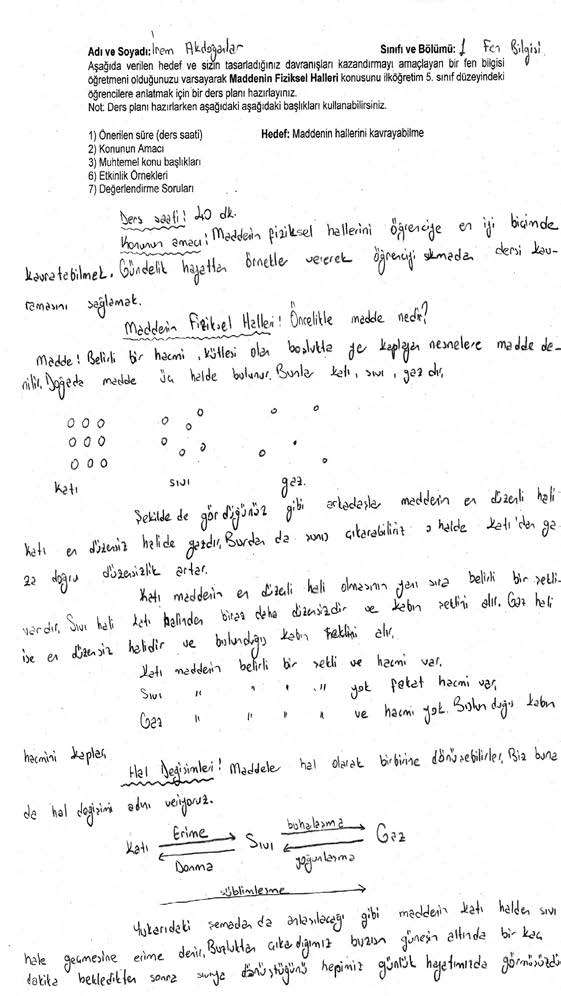 Adı ve Soyadı: İrem Akdoğanlar Sınıfı ve Bölümü: 1 Fen Bilgisi
Aşağıda verilen hedef ve sizin tasarladığınız davranışları kazandırmayı amaçlayan bir fen bilgisi
öğretmeni olduğunuzu varsayarak Maddenin Fiziksel Halleri konusunu ilköğretim 5. sınıf düzeyindeki
öğrencilere anlatmak için bir ders planı hazırlayınız.
Not: Ders planı hazırlarken aşağıdaki aşağıdaki başlıkları kullanabilirsiniz.
1) Önerilen süre (ders saati) Hedef: Maddenin hallerini kavrayabilme
2) Konunun Amacı
3) Muhtemel konu başlıkları
6) Etkinlik Örnekleri
7) Değerlendirme Soruları
Ders saati: 40 dk.
Konunun amacı: Maddenin fiziksel hallerini öğrenciye en iyi biçimde
kavratabilmek. Gündelik hayattan örnekler vererek öğrenciyi sıkmadan dersi kav-
ramasını sağlamak.
Maddenin Fiziksel Halleri: Öncelikle madde nedir?
Madde: Belirli bir hacmi, kütlesi olan boşlukta yer kaplayan nesnelere madde de-
nilir. Doğada madde üç halde bulunur. Bunlar katı, sıvı, gaz dır.
katı sıvı gaz.
Şekilde de gördüğünüz gibi arkadaşlar maddenin en düzenli hali
katı en düzensiz halide gazdır. Burdan da şunu çıkarabiliriz o halde katı'dan ga
za doğru düzensizlik artar.
Katı maddenin en düzenli hali olmasının yanı sıra belirli bir şekli
vardır. Sıvı hali katı halinden biraz daha düzensizdir ve kabın şeklini alır. Gaz hali
ise en düzensiz halidir ve bulunduğu kabın şeklini alır.
Katı maddenin belirli bir şekli ve hacmi var.
Sıvı " " " " yok fakat hacmi var.
Gaz " " " " ve hacmi yok. Bulunduğu kabın
hacmini kaplar.
Hal Değişimleri: Maddeler hal olarak birbirine dönüşebilirler. Biz buna
da hal değişimi adını veriyoruz.
Katı Erime Sıvı buharlaşma Gaz
Donma yoğunlaşma
süblimleşme
Yukarıdaki şemadan da anlaşılacağı gibi maddenin katı halden sıvı
hale geçmesine erime denir. Buzluktan çıkardığımız buzun güneşin altında bir kaç
dakika bekledikten sonra sıvıya dönüştüğünü hepimiz günlük hayatımızda görmüşüzdür